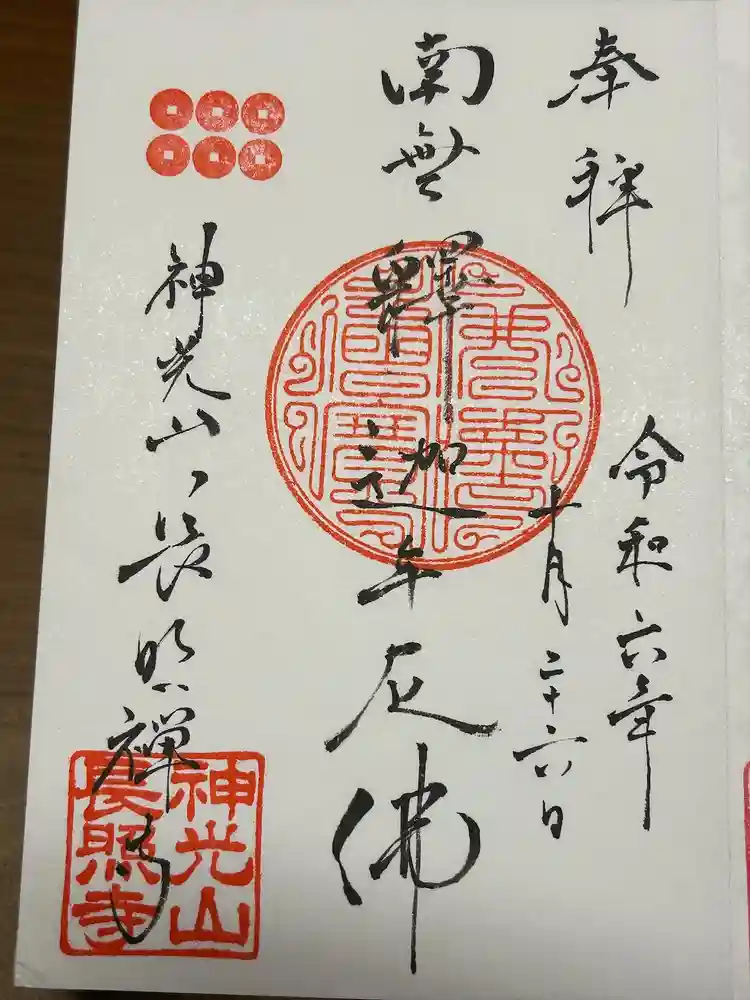 奉拝
令和六年
十月二十六日
南無釋迦牟尼佛
神光山長照禅寺
神光山
長照寺